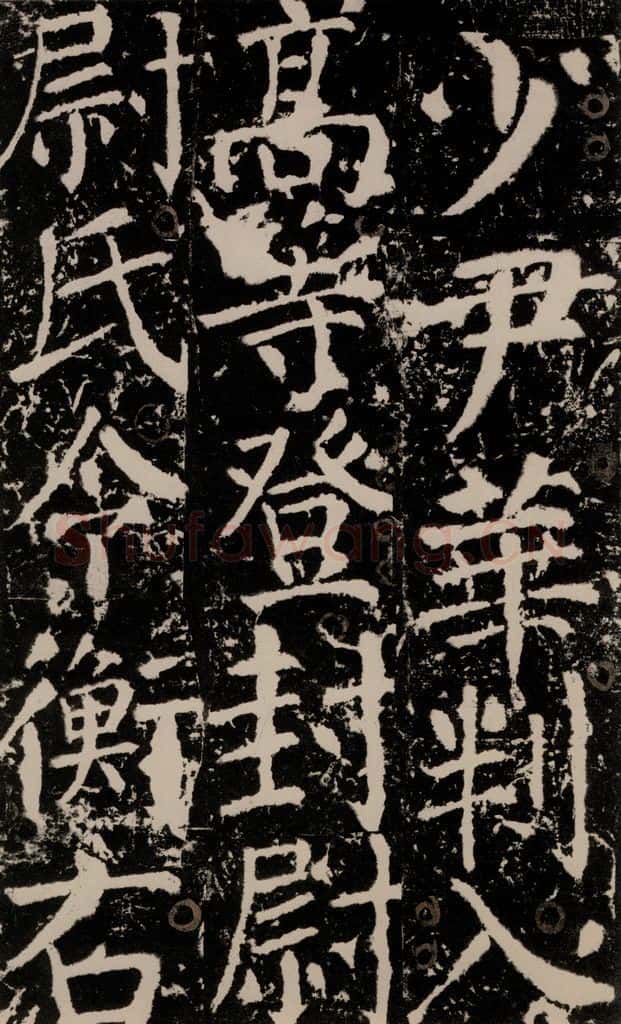 少尹華判入
高等登封尉
尉氏令衡右
Shufawang.CN